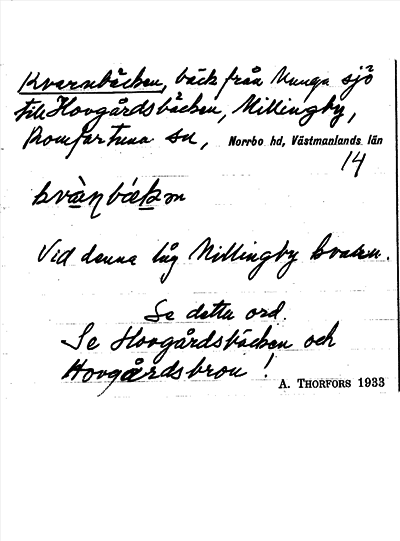 Kvarnbäcken, bäck från Nunga sjö
till Hovgårdsbäcken, Nillingby,
Romfartuna sn, Norrbo hd, Västmanlands län
14
Vid denna låg Nillingby kvarn.
Se detta ord.
Se Hovgårdsbäcken och
Hovgårdsbron!
A. THORFORS 1933